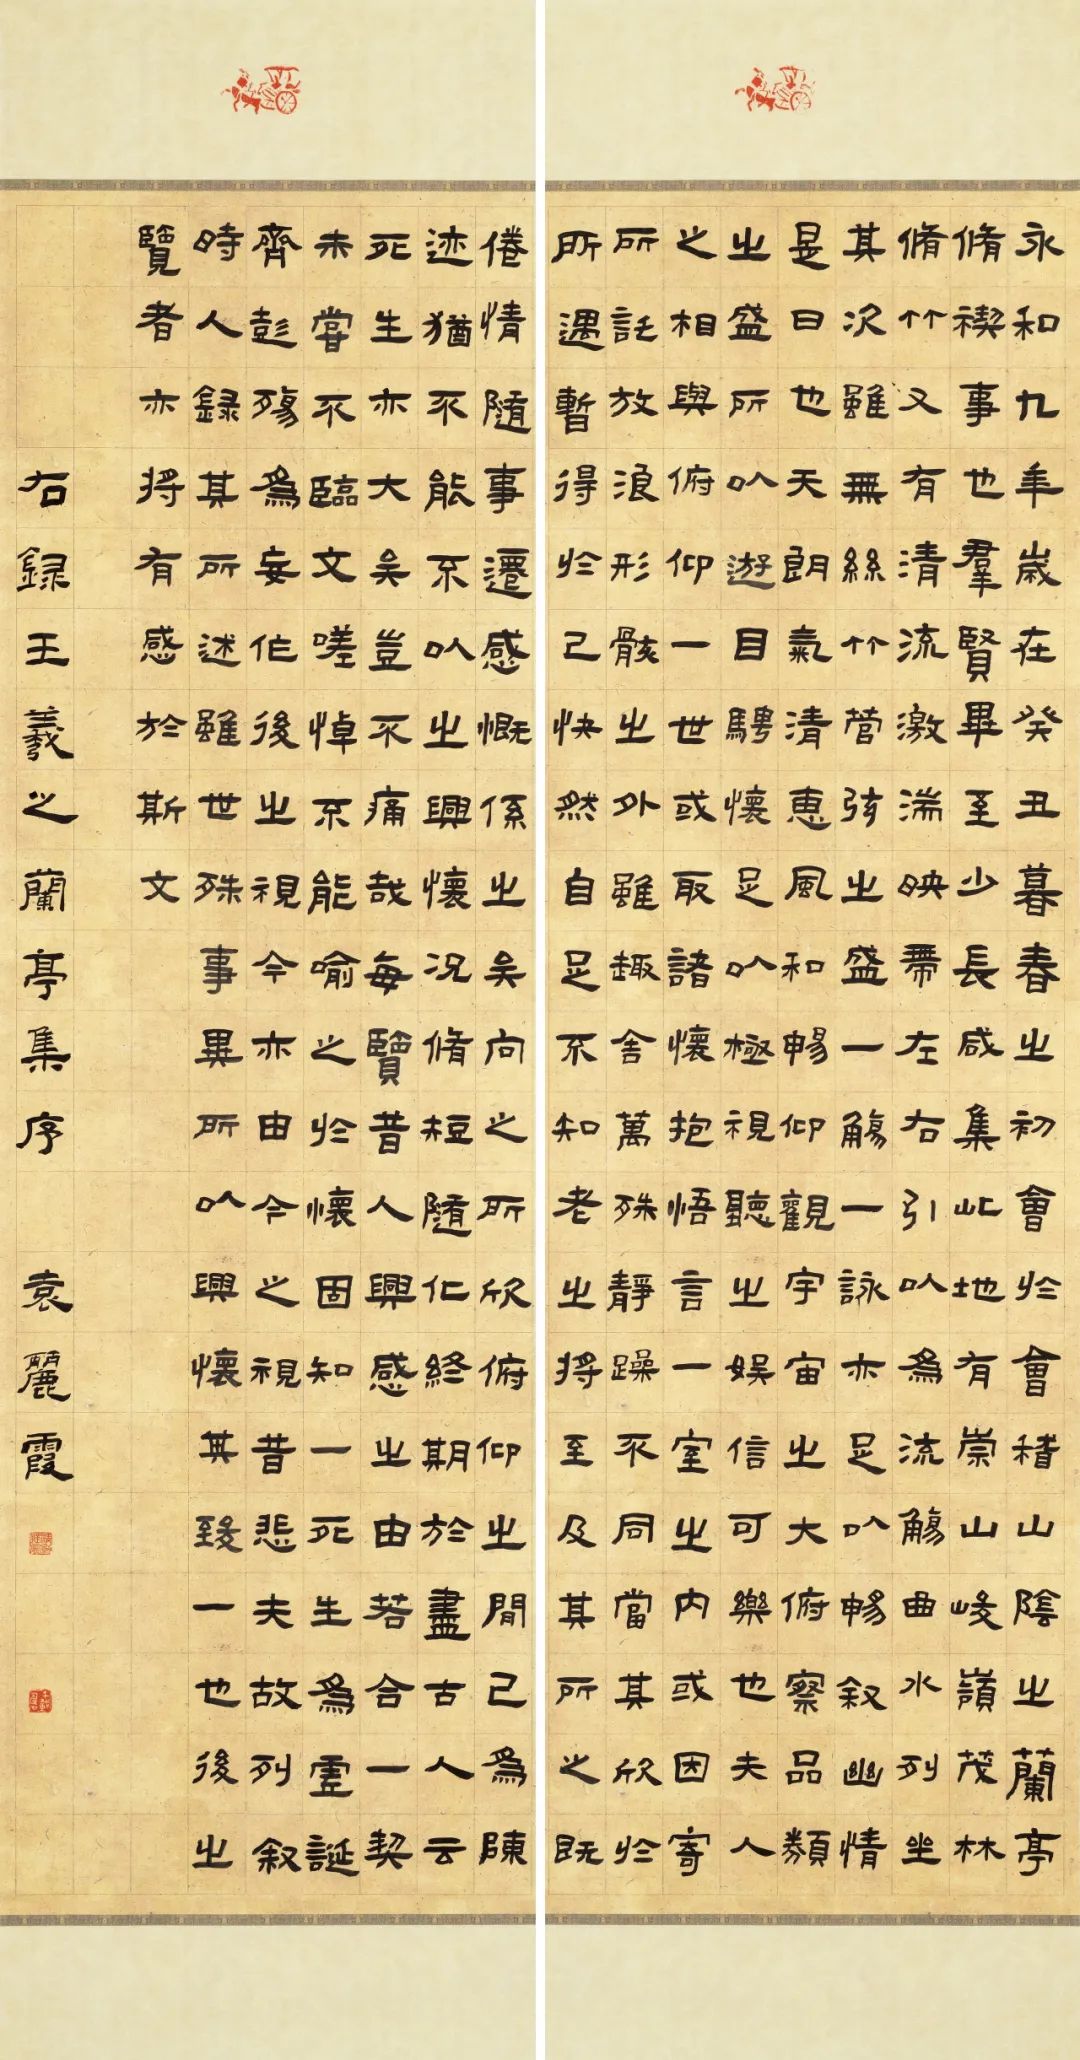 永和九年歲在癸丑暮春之初會於會稽山陰之蘭亭
脩禊事也羣賢畢至少長咸集此地有崇山峻嶺茂林
脩竹又有清流激湍映帶左右引以為流觴曲水列坐
其次雖無絲竹管弦之盛一觴一詠亦足以暢叙幽情
是日也天朗氣清惠風和暢仰觀宇宙之大俯察品類
之盛所以遊目騁懷足以極視聽之娛信可樂也夫人
之相與俯仰一世或取諸懷抱悟言一室之內或因寄
所託放浪形骸之外雖趣舍萬殊靜躁不同當其欣於
所遇暫得於己快然自足不知老之將至及其所之既
倦情隨事遷感慨係之矣向之所欣俯仰之閒已為陳
迹猶不能不以之興懷況脩短隨化終期於盡古人云
死生亦大矣豈不痛哉每覽昔人興感之由若合一契
未嘗不臨文嗟悼不能喻之於懷固知一死生為虛誕
齊彭殤為妄作後之視今亦由今之視昔悲夫故列叙
時人錄其所述雖世殊事異所以興懷其致一也後之
覽者亦將有感於斯文
右錄王羲之蘭亭集序 袁麗霞